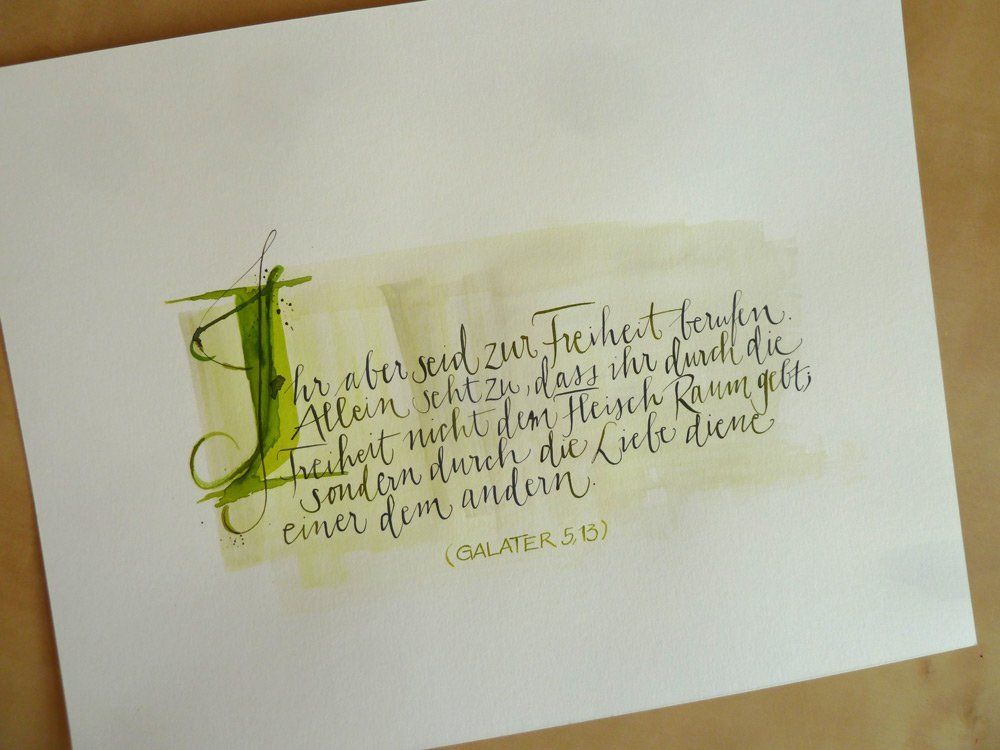 Ihr aber seid zur Freiheit berufen.
Allein seht zu, dass ihr durch die
Freiheit nicht dem Fleisch Raum gebt;
sondern durch die Liebe diene
einer dem andern.
(GALATER 5,13)